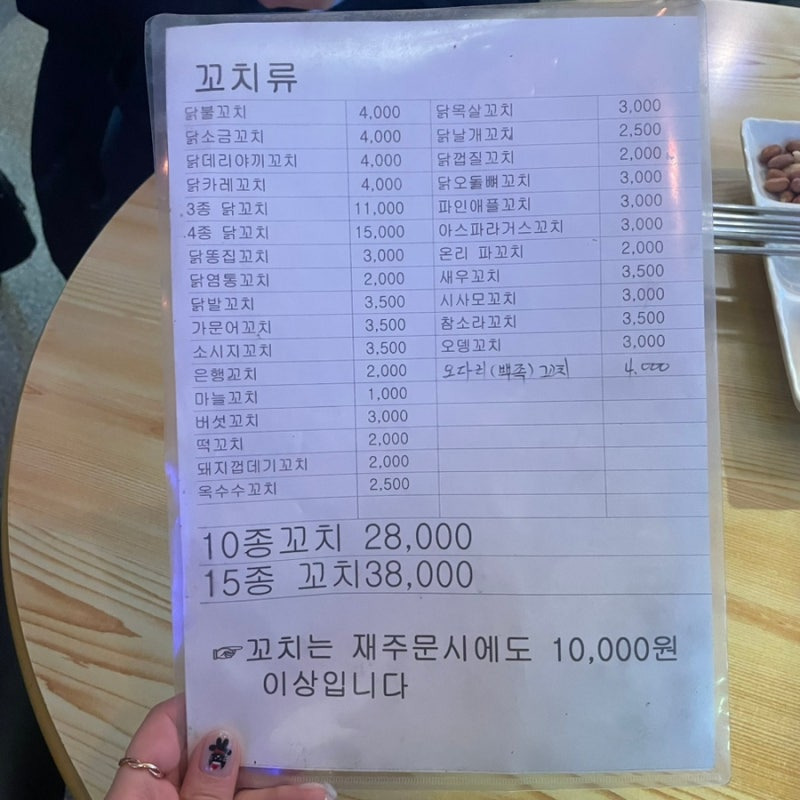 꼬치류
닭불꼬치 4,000 닭목살꼬치 3,000
닭소금꼬치 4,000 닭날개꼬치 2,500
닭데리야끼꼬치 4,000 닭껍질꼬치 2,000
닭카레꼬치 4,000 닭오돌뼈꼬치 3,000
3종 닭꼬치 11,000 파인애플꼬치 3,000
4종 닭꼬치 15,000 아스파라거스꼬치 3,000
닭똥집꼬치 3,000 온리 파꼬치 2,000
닭염통꼬치 2,000 새우꼬치 3,500
닭발꼬치 3,500 시사모꼬치 3,000
가문어꼬치 3,500 참소라꼬치 3,500
소시지꼬치 3,500 오뎅꼬치 3,000
은행꼬치 2,000 오다리(백족)꼬치 4,000
마늘꼬치 1,000
버섯꼬치 3,000
떡꼬치 2,000
돼지껍데기꼬치 2,000
옥수수꼬치 2,500
10종꼬치 28,000
15종 꼬치38,000
☞꼬치는 재주문시에도 10,000원
이상입니다